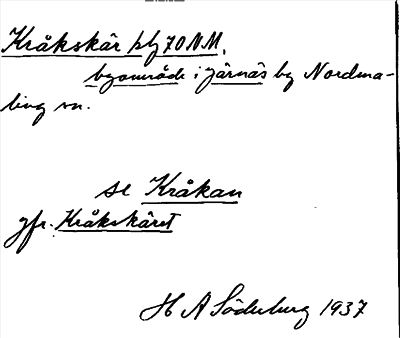 Kråkskär plg 70 N.M.
byområde i Järnäs by Nordma-
ling sn.
se Kråkan
jfr. Kråkskäret
H A Söderberg 1937